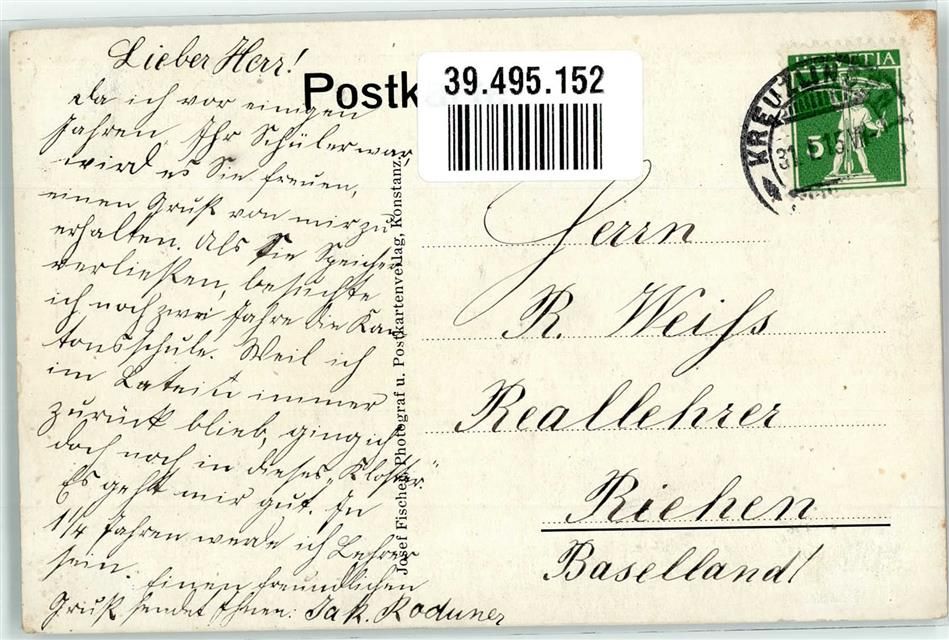 Lieber Herr!
da ich vor einigen
Jahren Ihr Schüler war,
wird es Sie freuen,
einen Gruß von mir zu
erhalten. Als Sie Speicher
verließen, besuchte
ich noch zwei Jahre die Kan
tonsschule. Weil ich
im Latein immer
zurück blieb, ging ich
doch noch in dieses „Kloster."
Es geht mir gut. In
1/4 Jahren werde ich Lehrer
sein. Einen freundlichen
Gruß sendet Ihnen: Jak. Roduner
Postk
39.495.152
Josef Fischer, Photograf u. Postkartenverlag, Konstanz.
HELVETIA
5
KREUZLIN
31. 15
Herrn
R. Weiss
Reallehrer
Riehen
Baselland!